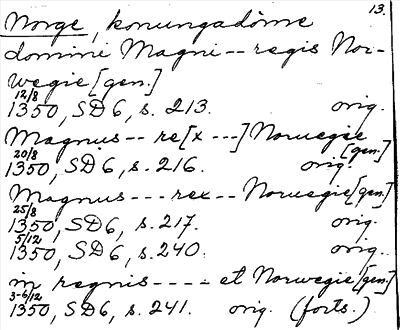 13.
Norge, konungadöme
domini Magni -- regis Nor-
wegie [gen.]
12/8
1350, SD 6, s. 213. orig.
Magnus -- re[x ---] Norwegie
[gen.]
20/8
1350, SD 6, s. 216. orig.
Magnus --- rex -- Norwegie [gen.]
25/8
1350, SD 6, s. 217. orig.
5/12
1350, SD 6, s. 240. orig.
in regnis ---- et Norwegie [gen.]
3-6/12
1350, SD 6, s. 241. orig. (forts.)